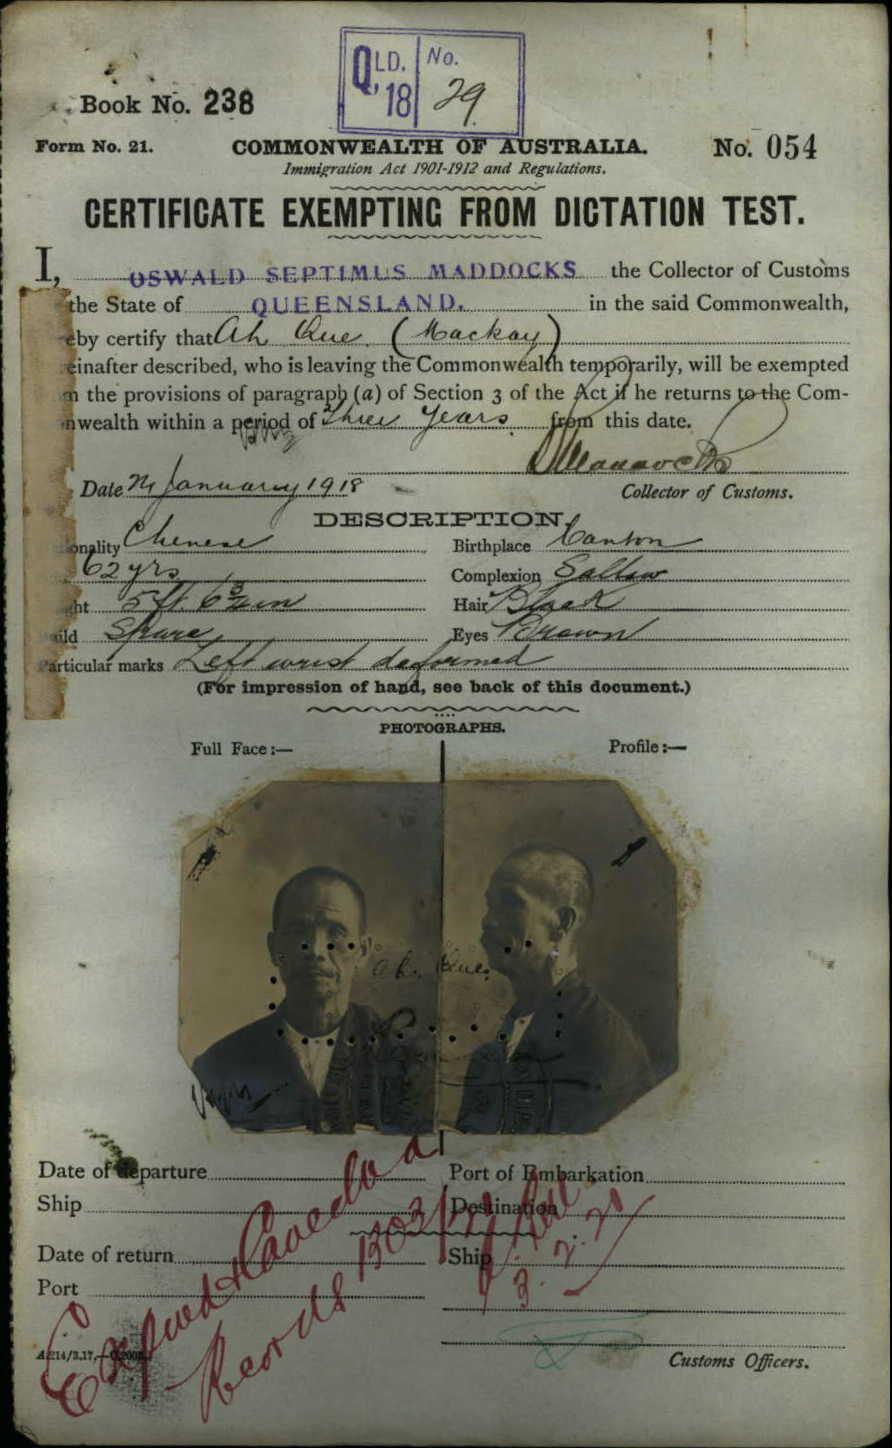 QLD. No.
'18 29
Book No. 238
Form No. 21. COMMONWEALTH OF AUSTRALIA. No. 054
Immigration Act 1901-1912 and Regulations.
CERTIFICATE EXEMPTING FROM DICTATION TEST.
I, OSWALD SEPTIMUS MADDOCKS the Collector of Customs
the State of QUEENSLAND. in the said Commonwealth,
eby certify that Ah Que. (Mackay)
einafter described, who is leaving the Commonwealth temporarily, will be exempted
m the provisions of paragraph (a) of Section 3 of the Act if he returns to the Com-
nwealth within a period of Three Years from this date.
Date January 1918 Collector of Customs.
DESCRIPTION.
onality Chinese Birthplace Canton
62 yrs Complexion Sallow
ght 5 ft 6¾ in Hair Black
uild Spare Eyes Brown
articular marks Left wrist deformed
(For impression of hand, see back of this document.)
PHOTOGRAPHS.
Full Face :— Profile :—
Ah Que.
Date of departure Port of Embarkation
Ship Destination
Date of return Ship
Port
Expired & Cancelled
Records 1303/21
3.2.21
Customs Officers.